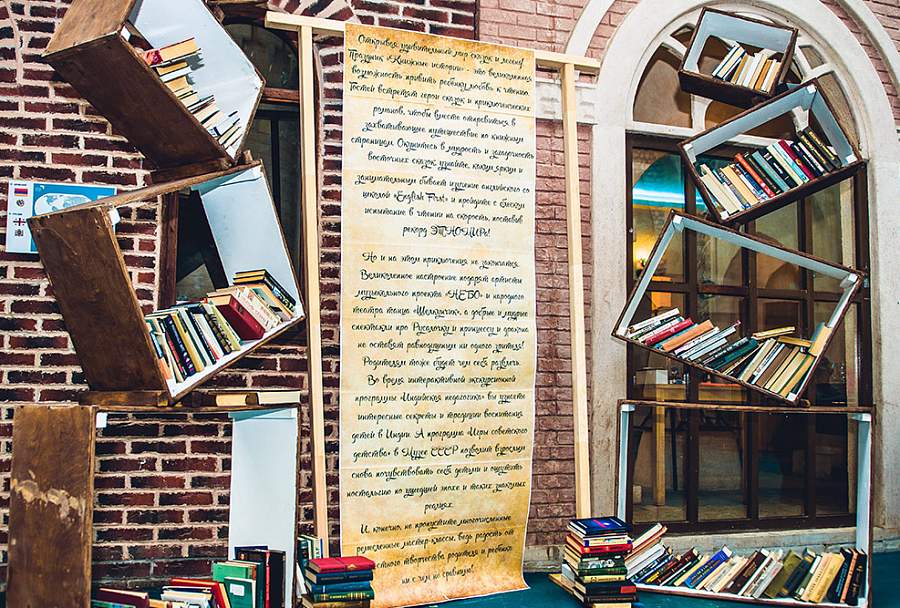 Открывая удивительный мир сказок и легенд!
Праздник «Книжные истории» - это великолепная
возможность привить ребенку любовь к чтению.
Гостей встретят герои сказок и приключенческих
романов, чтобы вместе отправиться в
захватывающее путешествие по книжным
страницам. Окунитесь в мудрость и загадочность
восточных сказок, узнайте, каким ярким и
занимательным бывает изучение английского со
школой «English First» и пройдите с блеском
испытание в чтении на скорость, поставив
рекорд ЭТНОМИРа!
Но и на этом приключения не закончатся.
Великолепное настроение подарят артисты
музыкального проекта «НЕБО» и народного
театра танца «Шелковичк», а добрые и мудрые
спектакли про Русалочку и принцессу и дракона
не оставят равнодушным ни одного зрителя!
Родителям тоже будет чем себя развлечь.
Во время интерактивной экскурсионной
программы «Индийская педагогика» вы узнаете
интересные секреты и традиции воспитания
детей в Индии. А программа «Игры советского
детства» в Музее СССР позволит взрослым
снова почувствовать себя детьми и ощутить
ностальгию по ушедшей эпохе и таких знакомых
реалиях.
И, конечно, не пропустите многочисленные
ремесленные мастер-классы, ведь радость от
совместного творчества родителя и ребенка
ни с чем не сравнить!